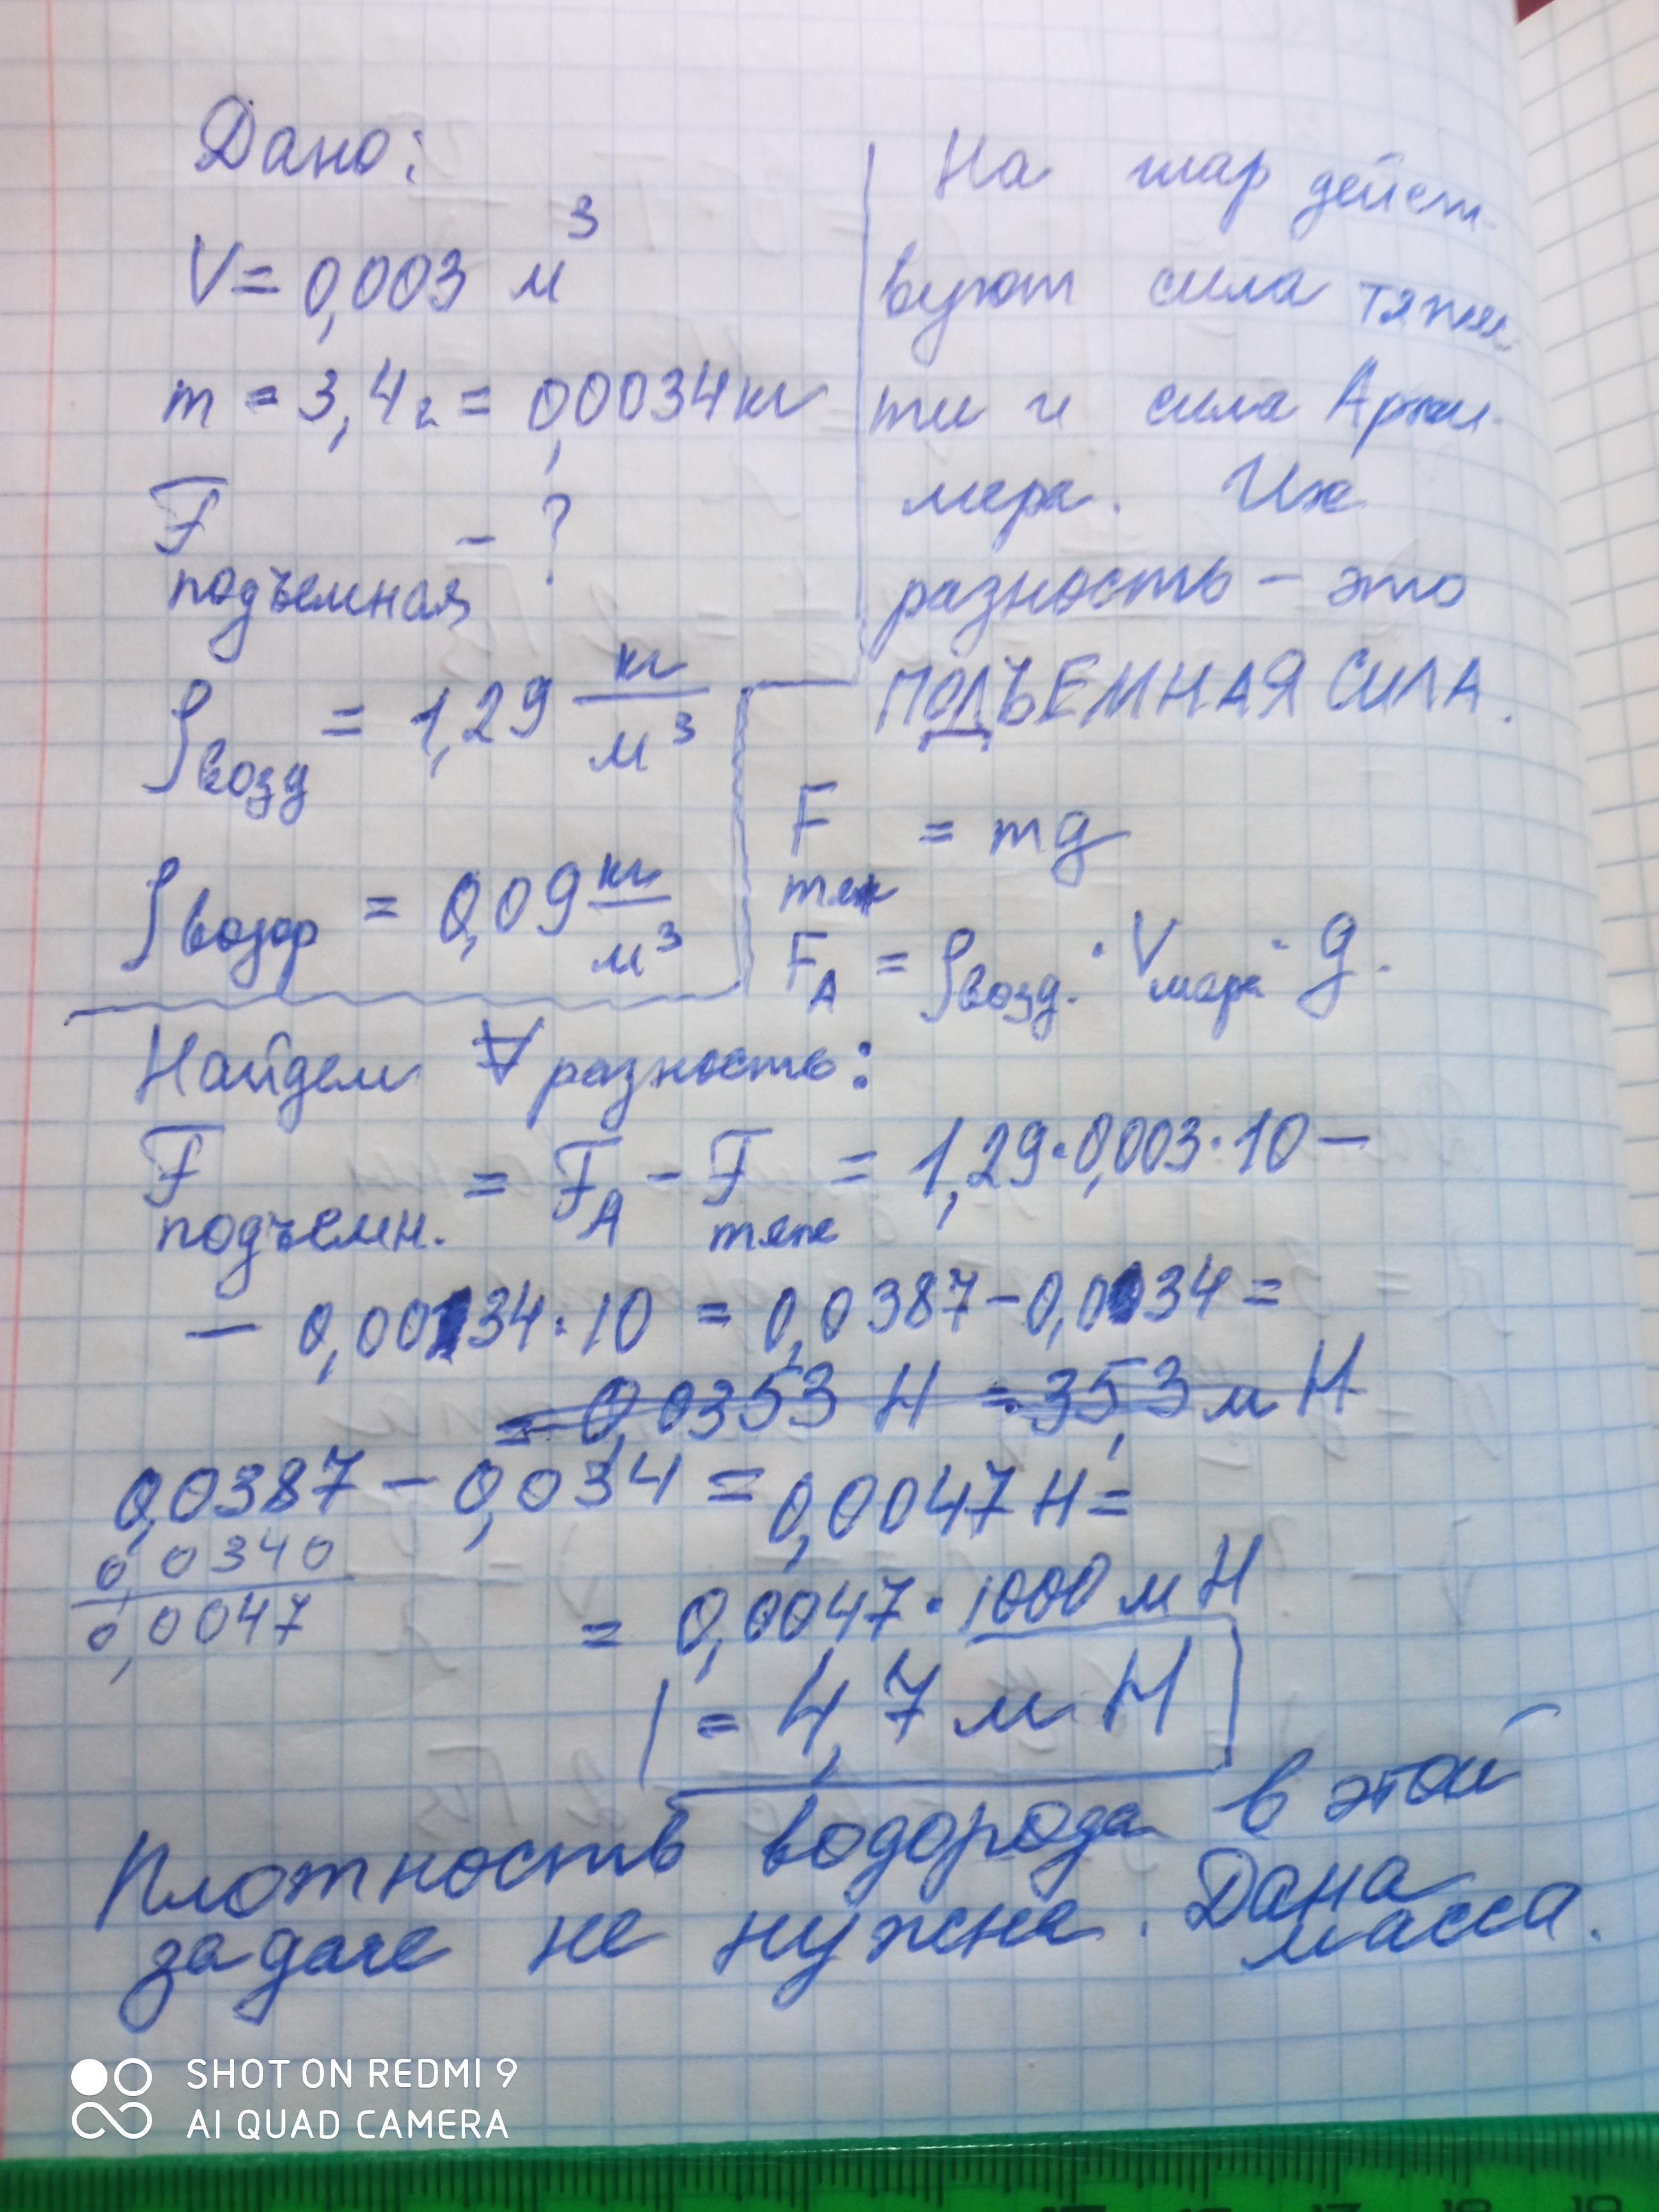 Дано:
V = 0,003 м³
m = 3,4 г = 0,0034 кг
F подъемная - ?
ρ возд = 1,29 кг/м³
ρ водор = 0,09 кг/м³
На шар дейст-
вуют сила тяжес
ти и сила Архи-
меда. Их
разность – это
ПОДЪЕМНАЯ СИЛА.
F тяж = mg
F_A = ρ возд. · V шара · g.
Найдем разность:
F подъемн. = F_A - F тяж = 1,29·0,003·10 –
– 0,0034·10 = 0,0387 – 0,034 =
= 0,0353 Н = 35,3 мН
0,0387 – 0,034 = 0,0047 Н =
0,0340
0,0047
= 0,0047 · 1000 мН
= 4,7 мН
Плотность водорода в этой
задаче не нужна. Дана
масса.
SHOT ON REDMI 9
AI QUAD CAMERA
17 18 19